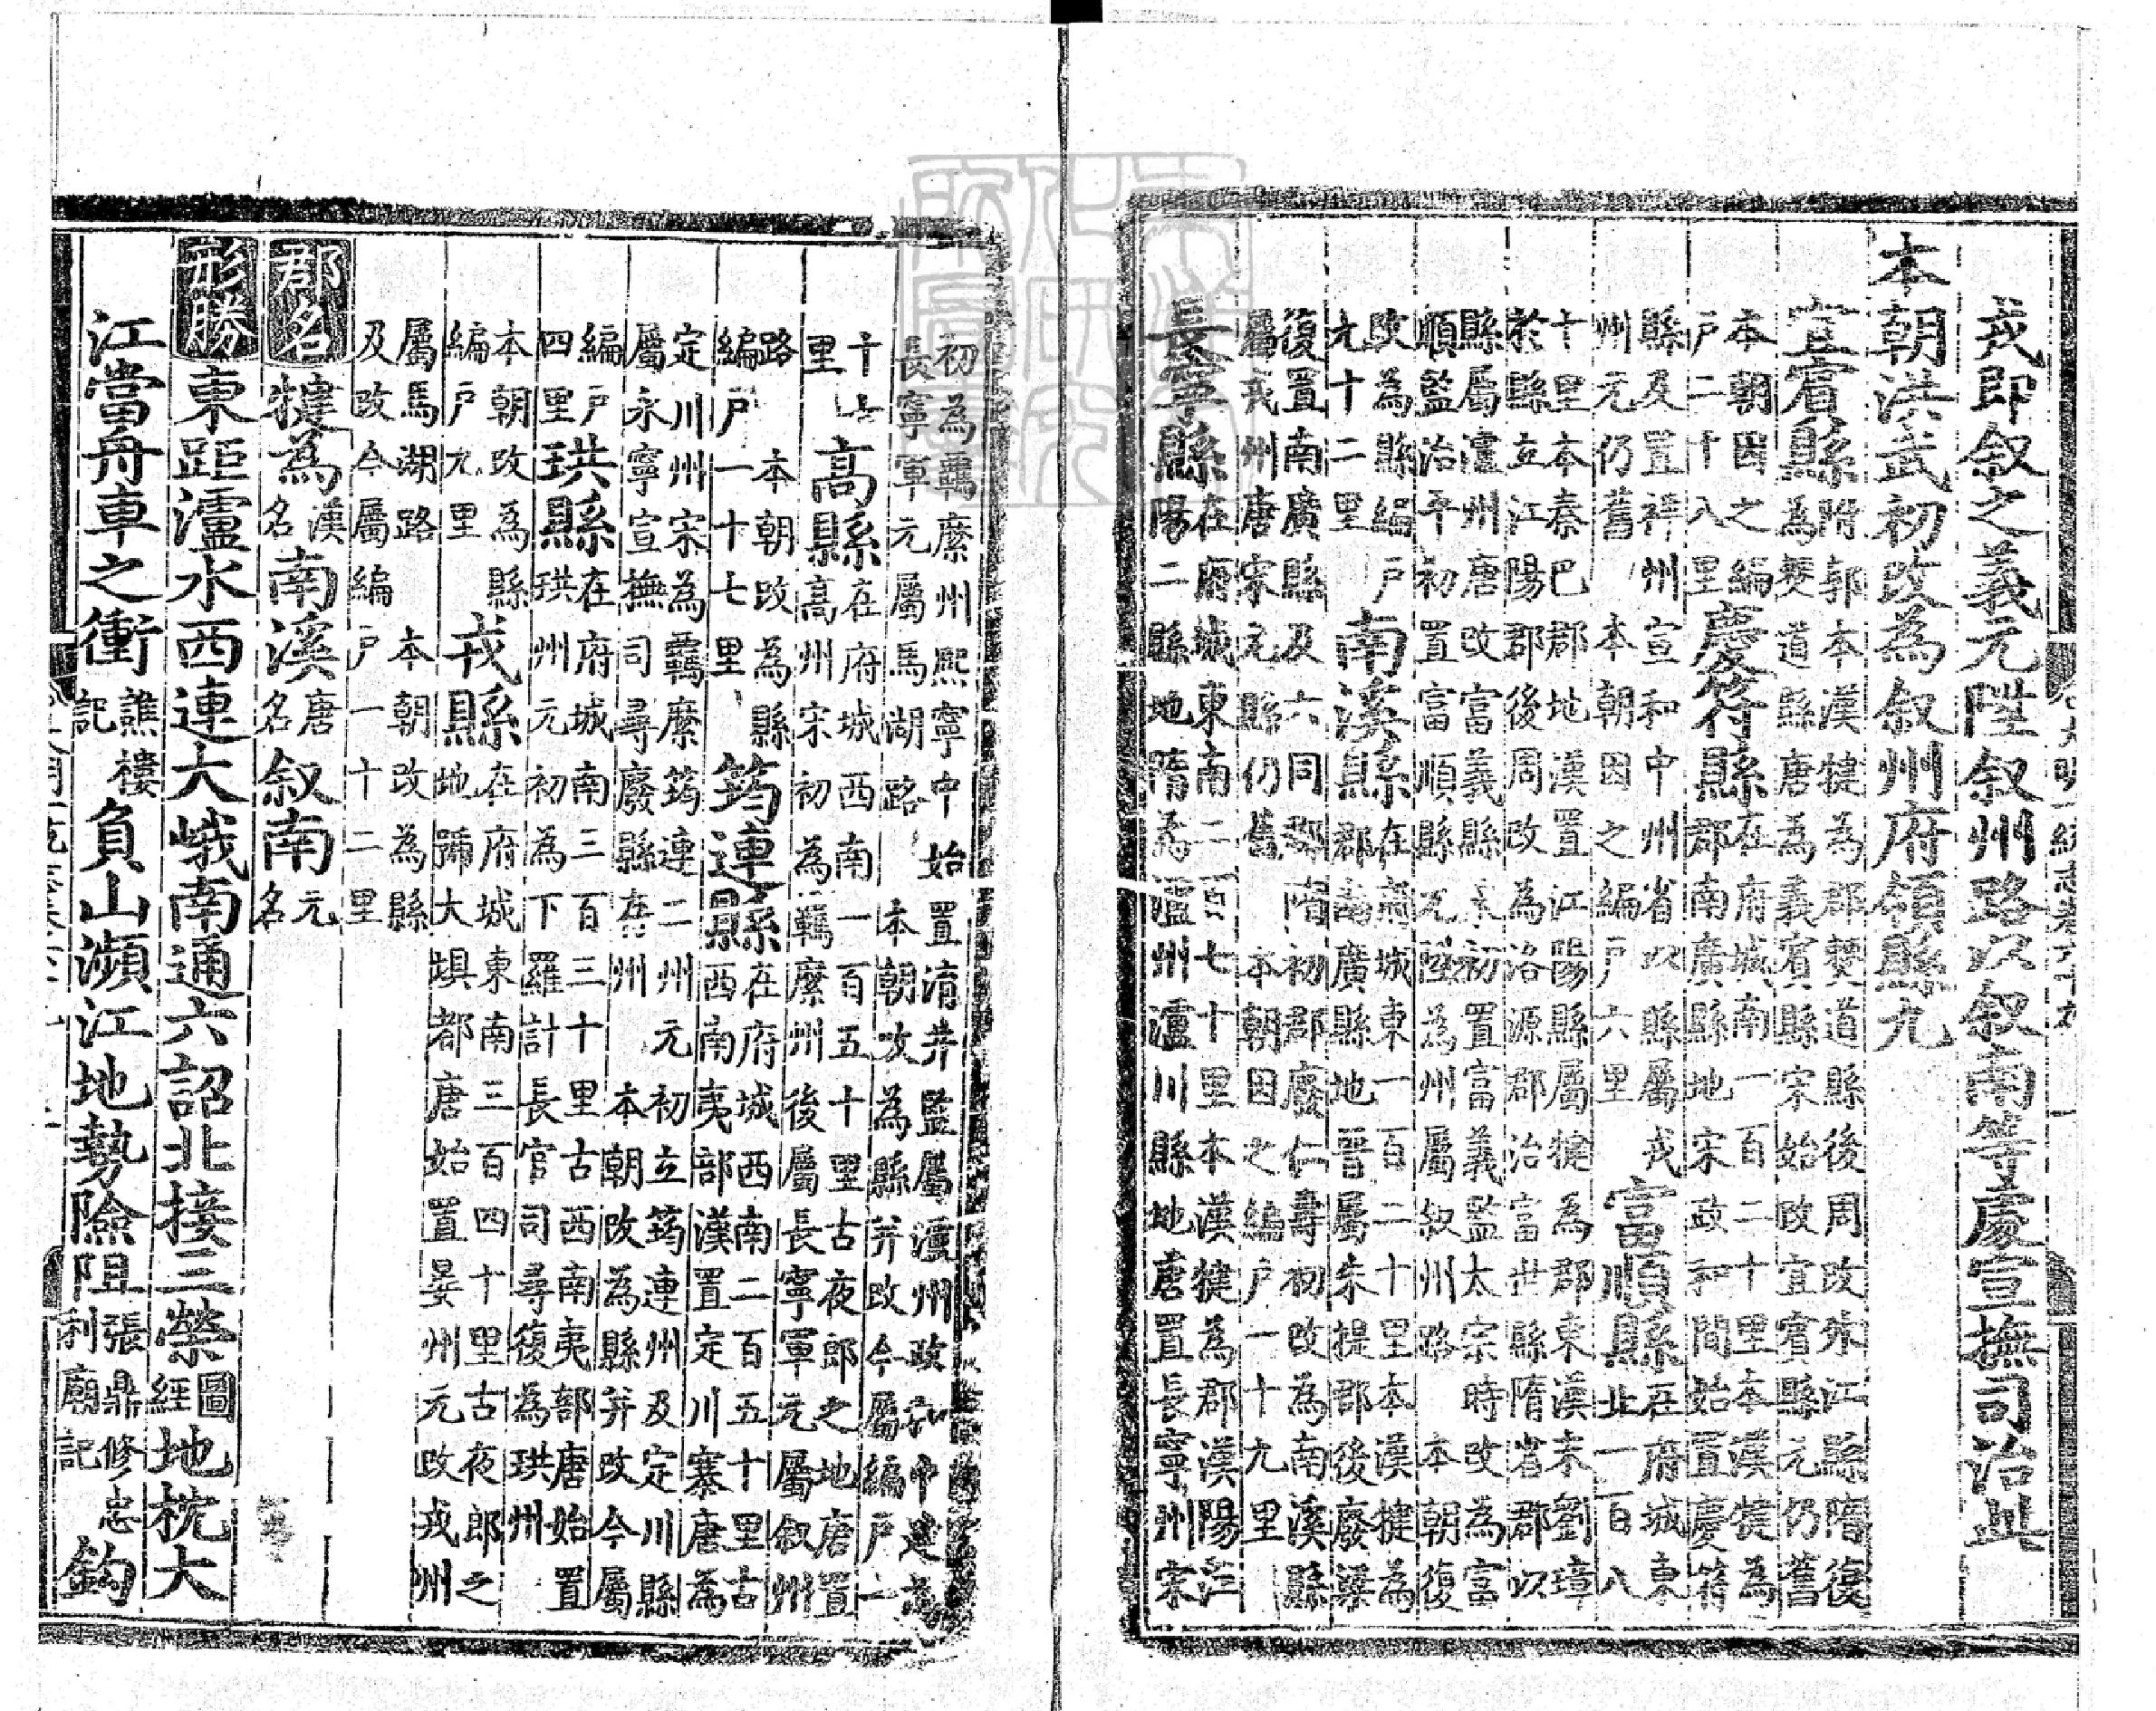 戎即叙之義元陞叙州路以叙南等處宣撫司治此
本朝洪武初改為叙州府領縣九
宜賓縣
附郭本漢犍為郡僰道縣後周改外江縣隋復
為僰道縣唐為義賓縣宋始改宜賓縣元仍舊
本朝因之編
户二十八里
慶符縣
在府城南一百二十里本漢犍為
郡南廣縣地宋政和間始置慶符
縣及置祥州宣和中州省以縣屬戎
州元仍舊　本朝因之編户六里
富順縣
在府城東
北一百八
十里本秦巴郡地漢置江陽縣屬犍為郡東漢末劉璋
於縣立江陽郡後周改為洛源郡治富世縣隋省郡以
縣屬瀘州唐改富義縣宋初置富義監太宗時改為富
順監治平初置富順縣元陞為州屬叙州路　本朝復
改為縣編户
九十二里
南溪縣
在府城東一百二十里本漢犍為
郡南廣縣地晉屬朱提郡後廢梁
復置南廣縣及六同郡隋初郡廢仁壽初改為南溪縣
屬戎州唐宋元縣仍舊　本朝因之編户一十九里
長寧縣
在府城東南二百七十里本漢犍為郡漢陽江
陽二縣地隋為瀘州瀘川縣地唐置長寧州宋
初為羈縻州熙寧中始置淯井監屬瀘州政和中建為
長寧軍元屬馬湖路　本朝改為縣并改今屬編户一
十七
里
高縣
在府城西南一百五十里古夜郎之地唐置
高州宋初為羈縻州後屬長寧軍元屬叙州
路　本朝改為縣
編户一十七里
筠連縣
在府城西南二百五十里古
西南夷部漢置定川寨唐為
定川州宋為羈縻筠連二州元初立筠連州及定川縣
屬永寧宣撫司尋廢縣存州　本朝改為縣并改今屬
編户
四里
珙縣
在府城南三百三十里古西南夷部唐始置
珙州元初為下羅計長官司尋復為珙州
本朝改為縣
編户九里
戎縣
在府城東南三百四十里古夜郎之
地號大壩都唐始置晏州元改戎州
屬馬湖路　本朝改為縣
及改今屬編户一十二里
郡名　犍為漢名　南溪唐名　叙南元名
形勝　東距瀘水西連大峨南通六詔北接三榮圖經　地枕大
江當舟車之衝譙樓記　負山瀕江地勢險阻張鼎修忠利廟記　鈎